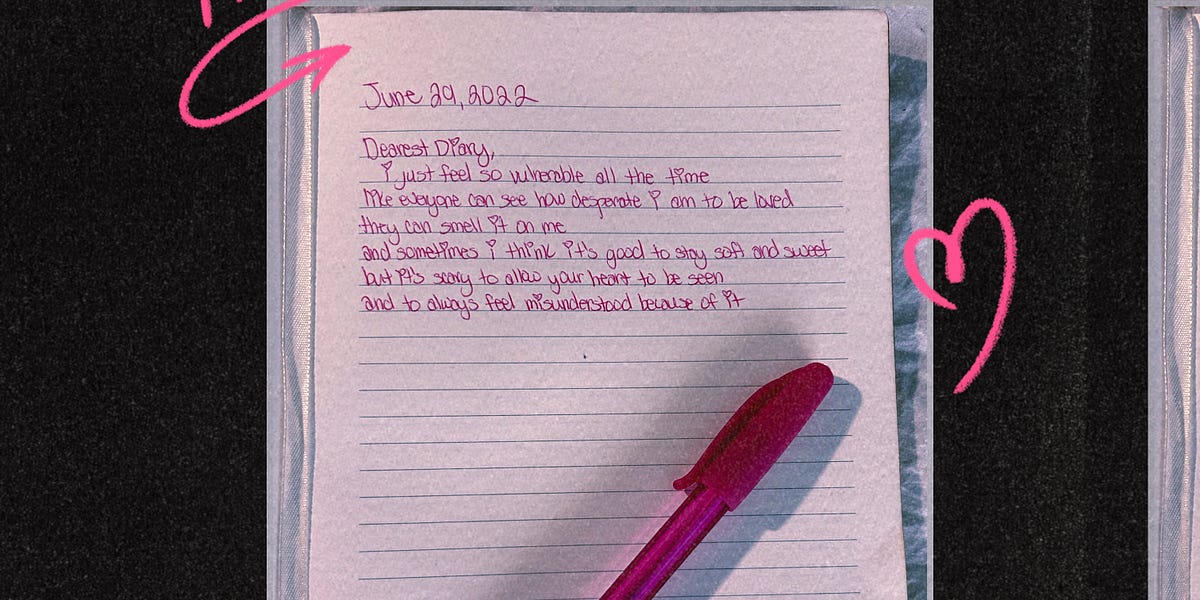 June 29, 2022
Dearest Diary,
i just feel so vulnerable all the time
like everyone can see how desperate i am to be loved
they can smell it on me
and sometimes i think it's good to stay soft and sweet
but it's scary to allow your heart to be seen
and to always feel misunderstood because of it